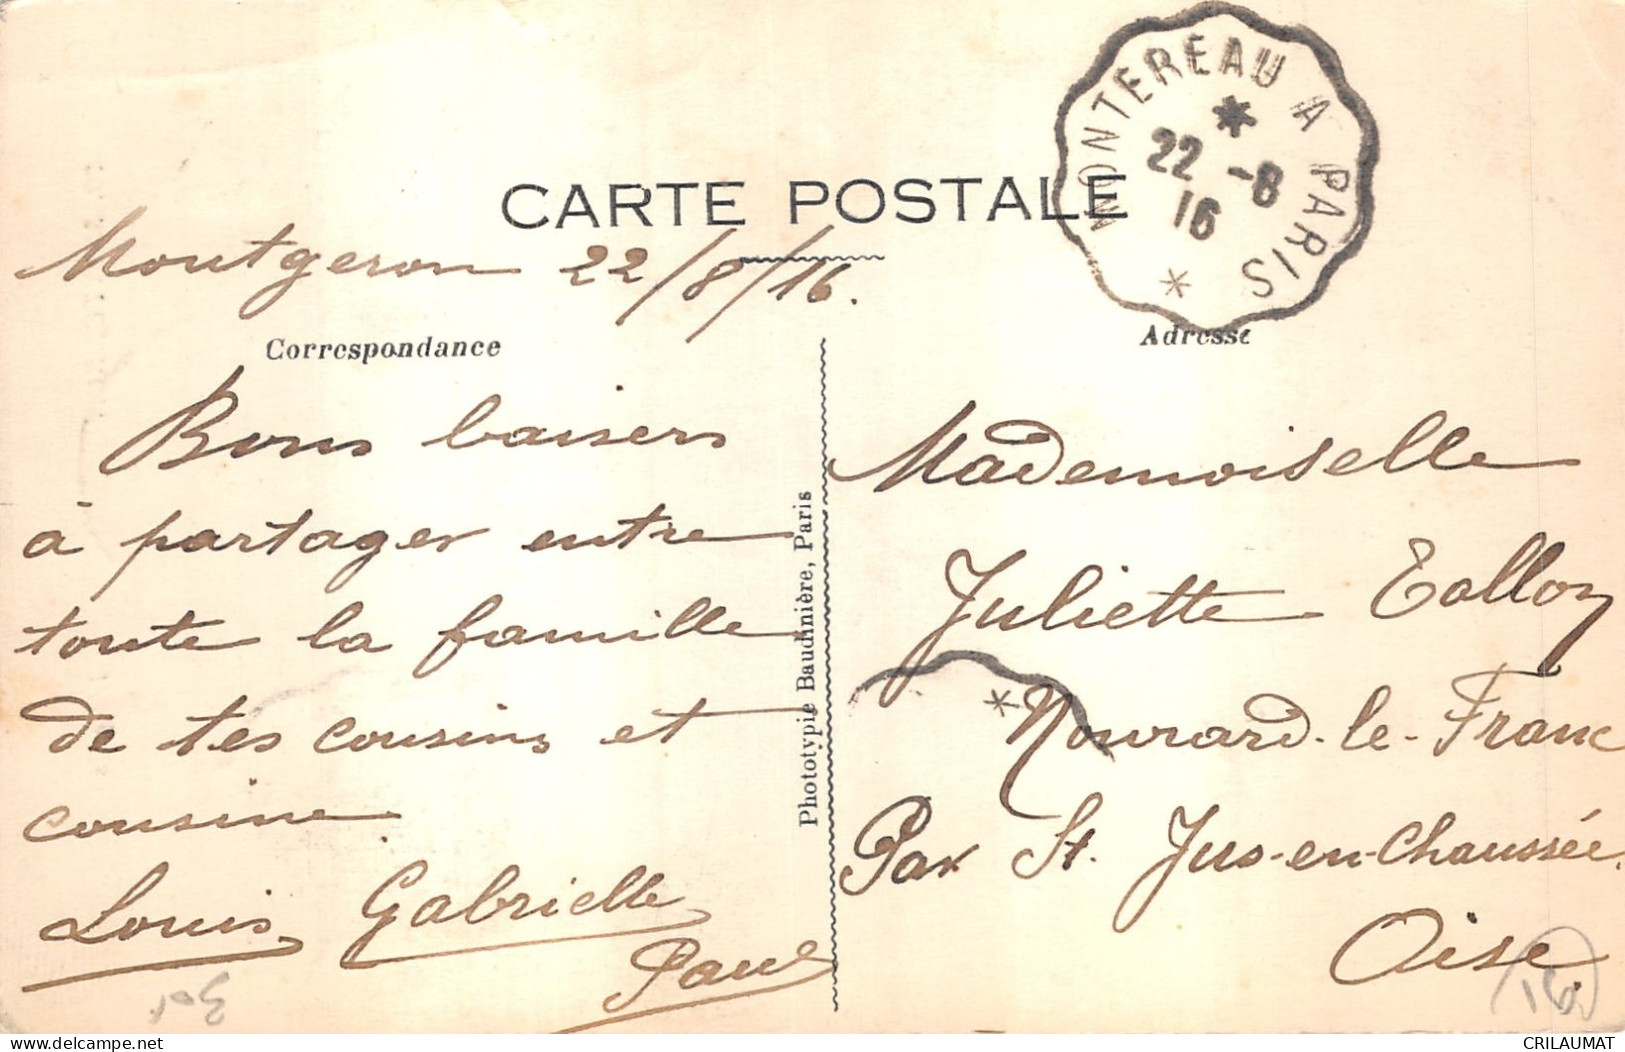 MONTEREAU A PARIS
22 -8
16
CARTE POSTALE
Montgeron 22/8/16.
Correspondance
Adresse
Bons baisers
à partager entre
toute la famille
de tes cousins et
cousine
Louis Gabrielle
Paul
Phototypie Baudinière, Paris
Mademoiselle
Juliette
Nourard-le-Franc
Par St. Jus-en-Chaussée
Oise.
delcampe.net
CRILAUMAT